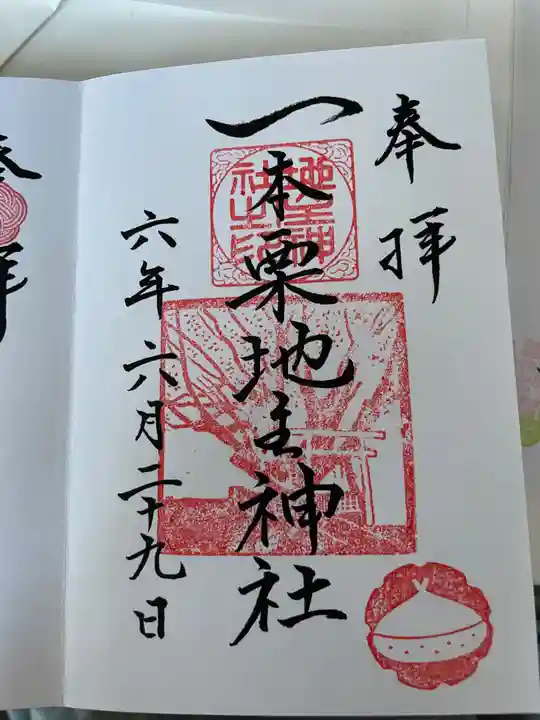 奉拝
一本栗地主神社
六年六月二十九日
奉拝